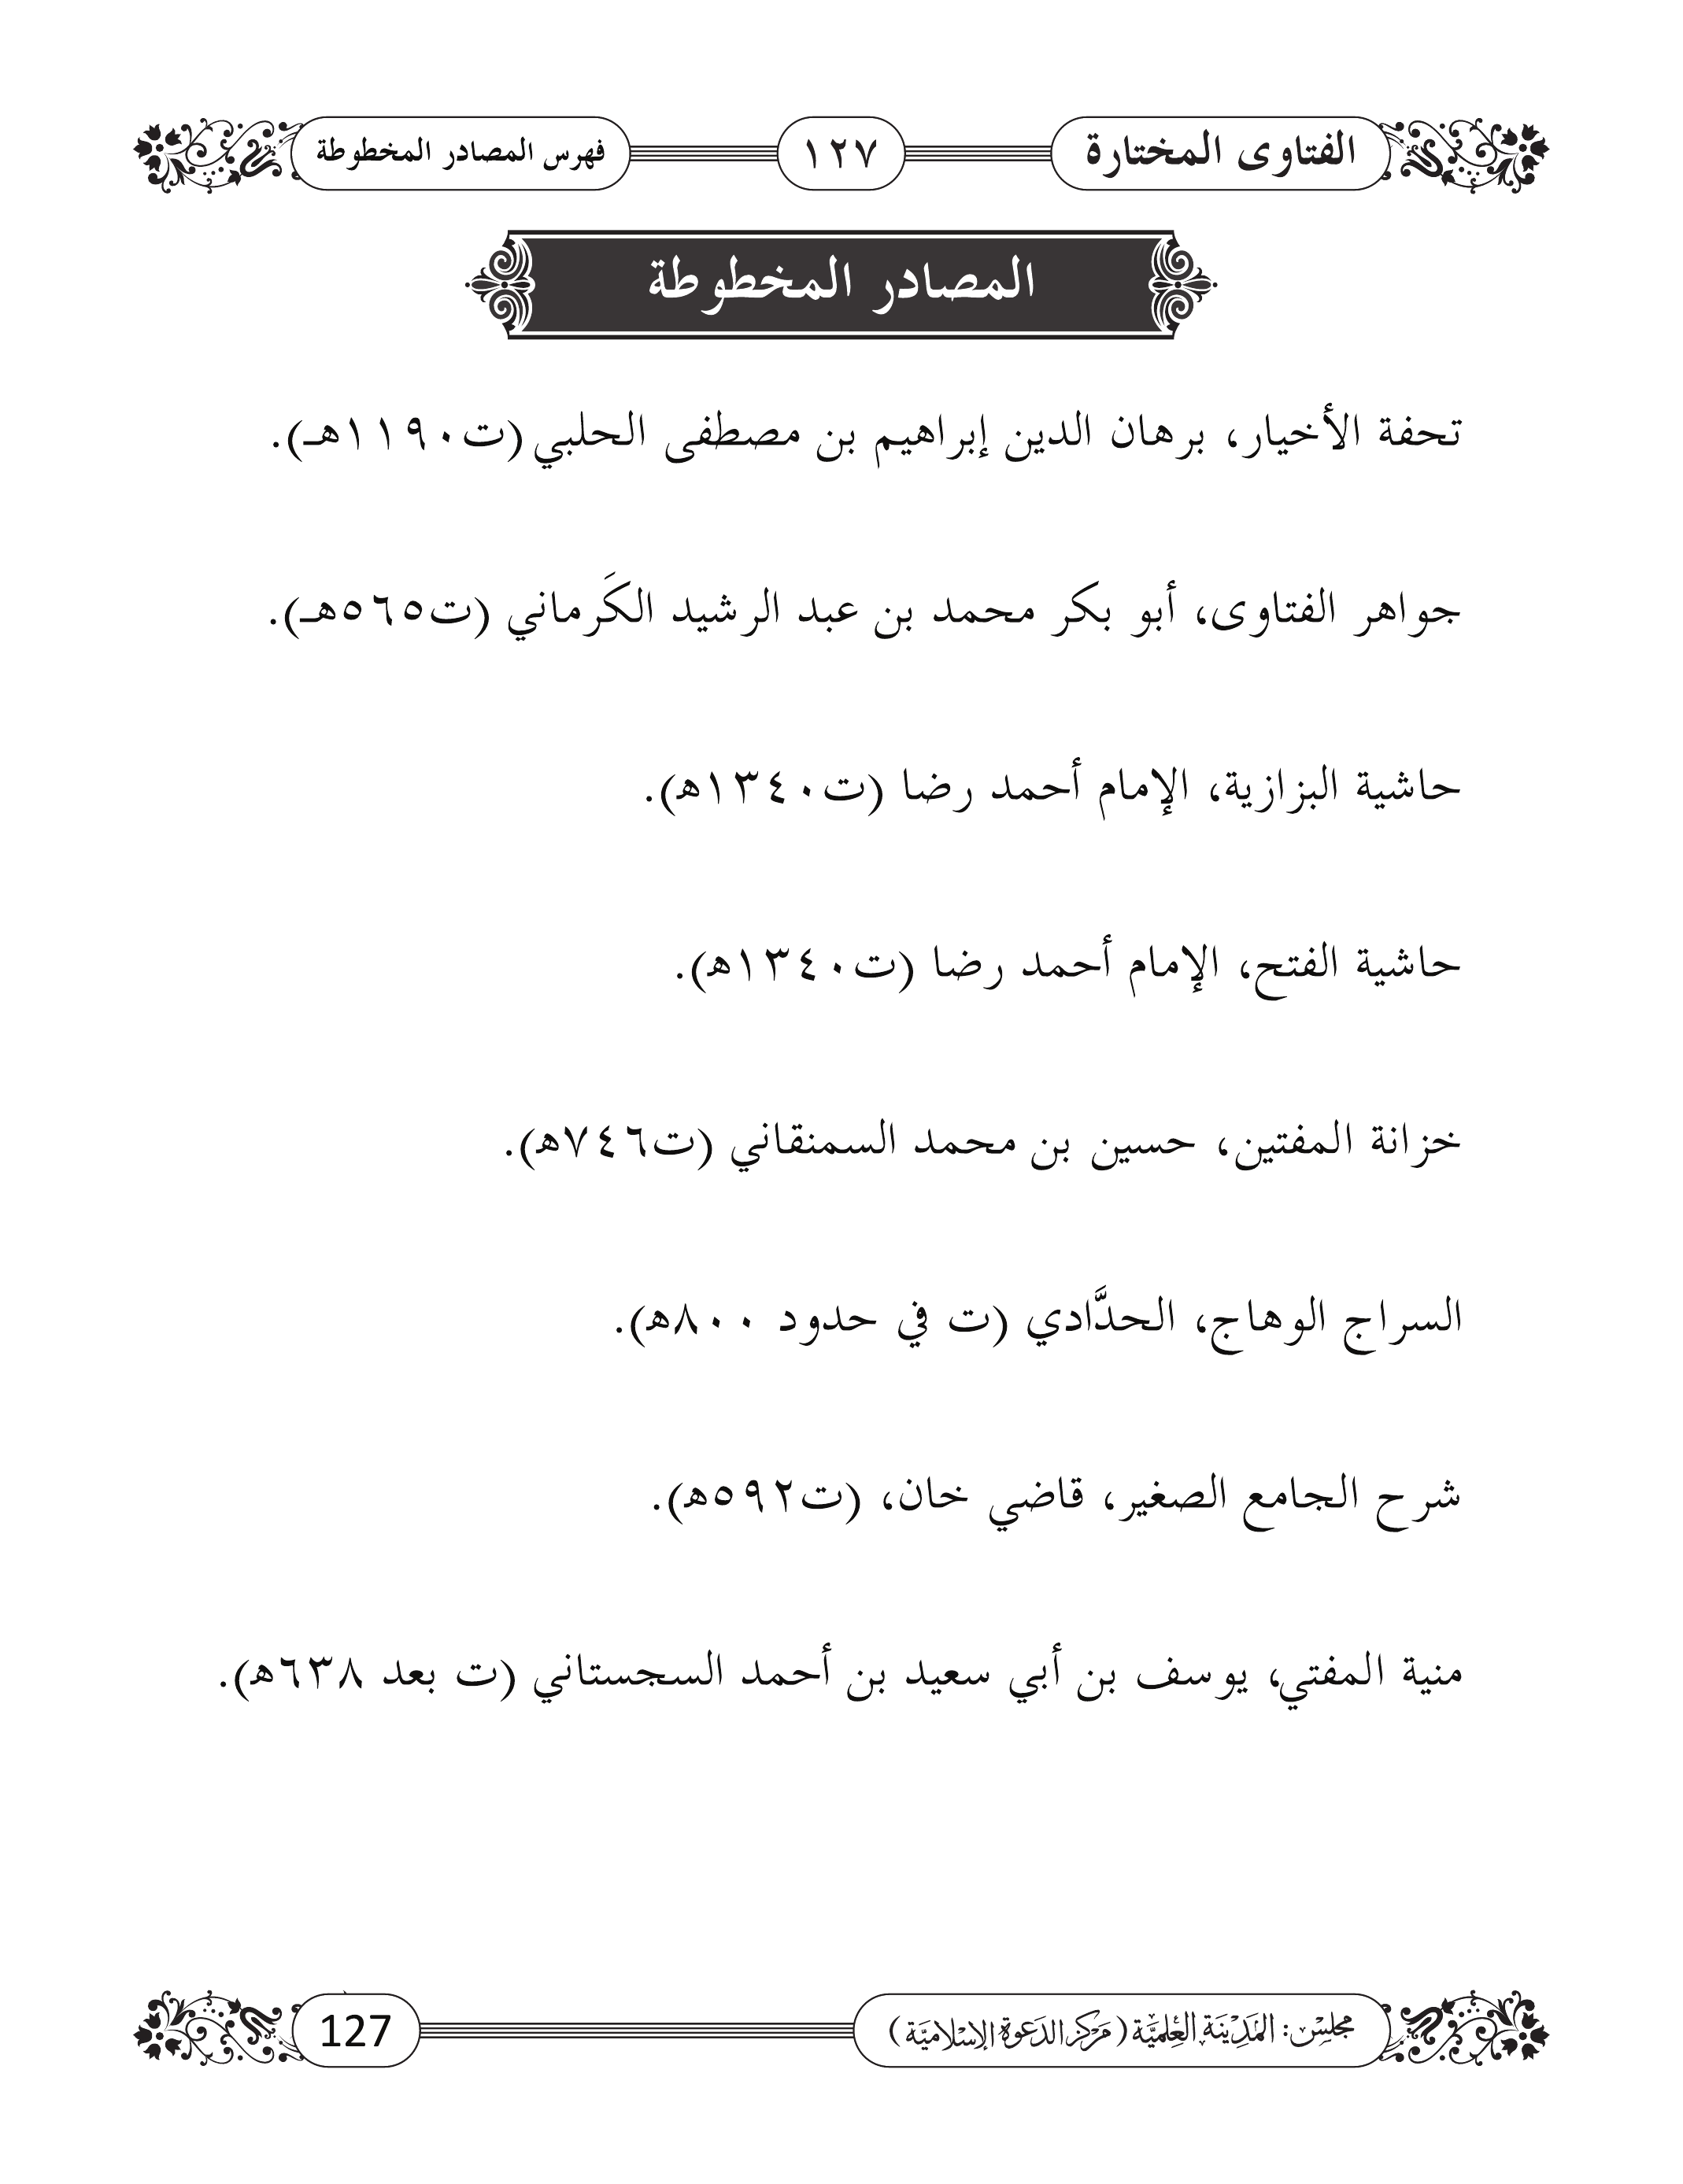 الفتاوى المختارة
١٢٧
فهرس المصادر المخطوطة
المصادر المخطوطة
تحفة الأخيار، برهان الدين إبراهيم بن مصطفى الحلبي (ت١١٩٠هـ).
جواهر الفتاوى، أبو بكر محمد بن عبد الرشيد الكَرماني (ت٥٦٥هـ).
حاشية البزازية، الإمام أحمد رضا (ت١٣٤٠ه).
حاشية الفتح، الإمام أحمد رضا (ت١٣٤٠ه).
خزانة المفتين، حسين بن محمد السمنقاني (ت٧٤٦ه).
السراج الوهاج، الحدَّادي (ت في حدود ٨٠٠ه).
شرح الجامع الصغير، قاضي خان، (ت٥٩٢ه).
منية المفتي، يوسف بن أبي سعيد بن أحمد السجستاني (ت بعد ٦٣٨ه).
مجلِسْ: المَدِيْنَة العِلميَّة (مَرْكز الدَعوة الإسْلاميَّة)
127